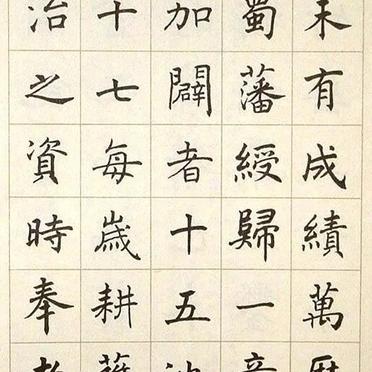 未有成績萬
蜀藩綬歸一
加闢者十五
十七每歲耕
治之資時奉